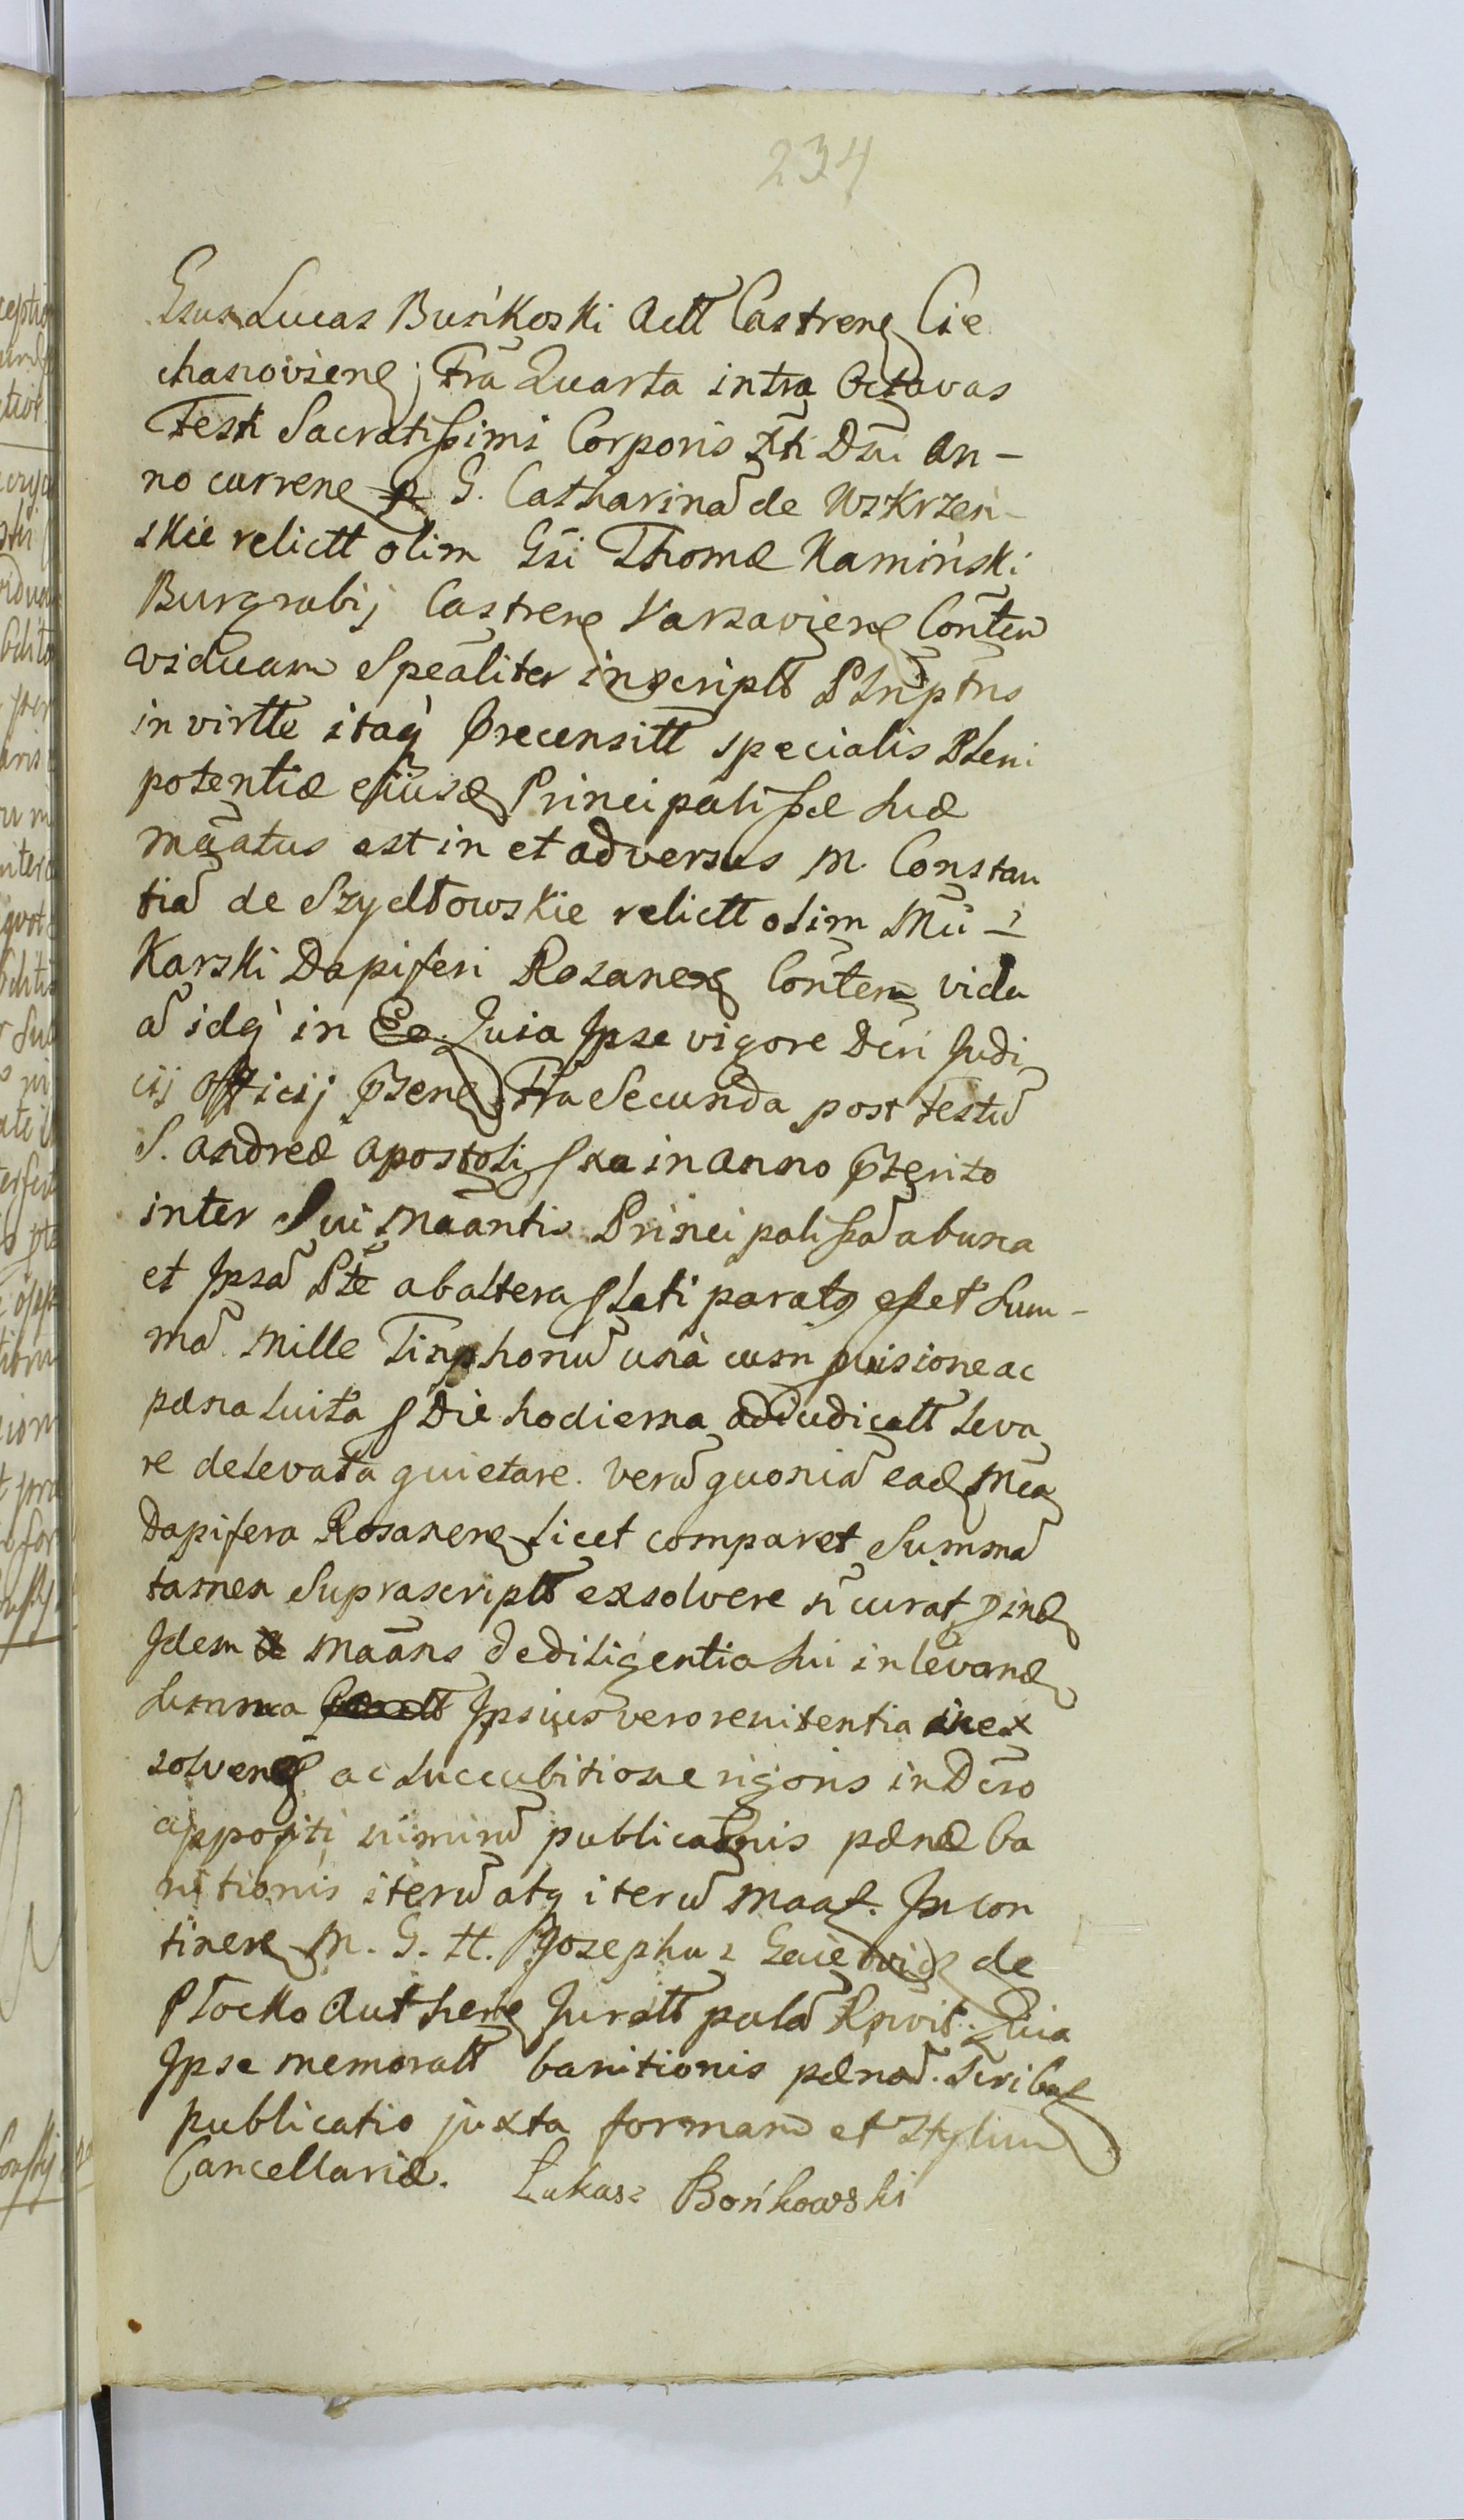 234
Gsus Lucas Buńkoski Actt Castren Cie
chanovien; Fra Quarta intra Octavas
Festi Sacratissimi Corporis Xti Dni An-
no curren p G. Catharina de Wskrzeń-
skie relictt olim Gsi Thomæ Kamiński
Burgrabij Castren Varsavien Conten
viduam Spealiter inscriptt Plnptns
in virtte itaq præcensitt specialis Pleni
potentiæ eiusd Principalissæ suæ
maatus est in et adversus M. Constan
tia de Szydłowskie relictt olim Mci
Karski Dapiferi Rosanen Conten vidu
a idq in Eo Quia Ipse vigore Dcri Judi
cij officij pnsen Fra Secunda post Festu
S. Andreæ Apostoli in Anno pterito
inter Sui Maantis Principalissa ab una
et Ipsa Pte ab altera lati parats esset Sum-
ma Mille Tinphonu una cum prisione ac
pæna luita p Die hodierna adiudicatt leva
re de levata quietare. Veru quonia ead Mca
Dapifera Rosanen licet comparet Summa
tamen Suprascriptt exsolvere n curat, pind
Idem Maans de diligentia sui in levand
summa Ipsius vero renitentia in ex
solvend ac succubitione rigoris in Dcro
appositi nimiru publicaonis pænæ ba
nitionis iteru atq iteru maas. In con
tinen M. G. tt. Josephus de
Płocko Authen Juratt pala Rpvit. Quia
Ipse memoratt banitionis pæna. Scribas
publicatio juxta formam et stylum
Cancellariæ. Łukasz Bońkowski